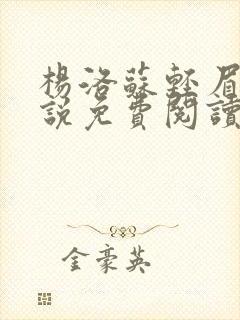 楊洛蘇輕眉
說免費閱讀
金豪英